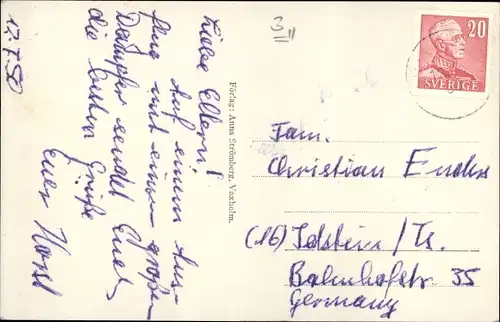 12.7.50
Liebe Eltern!
Auf einem Aus-
flug mit einem großen
Dampfer sendet Euch
die besten Grüße
Euer Horst
Förlag: Anna Strömberg, Vaxholm.
3
20
SVERIGE
Fam.
Christian Enders
(16) Idstein/Ts.
Bahnhofstr. 35
Germany